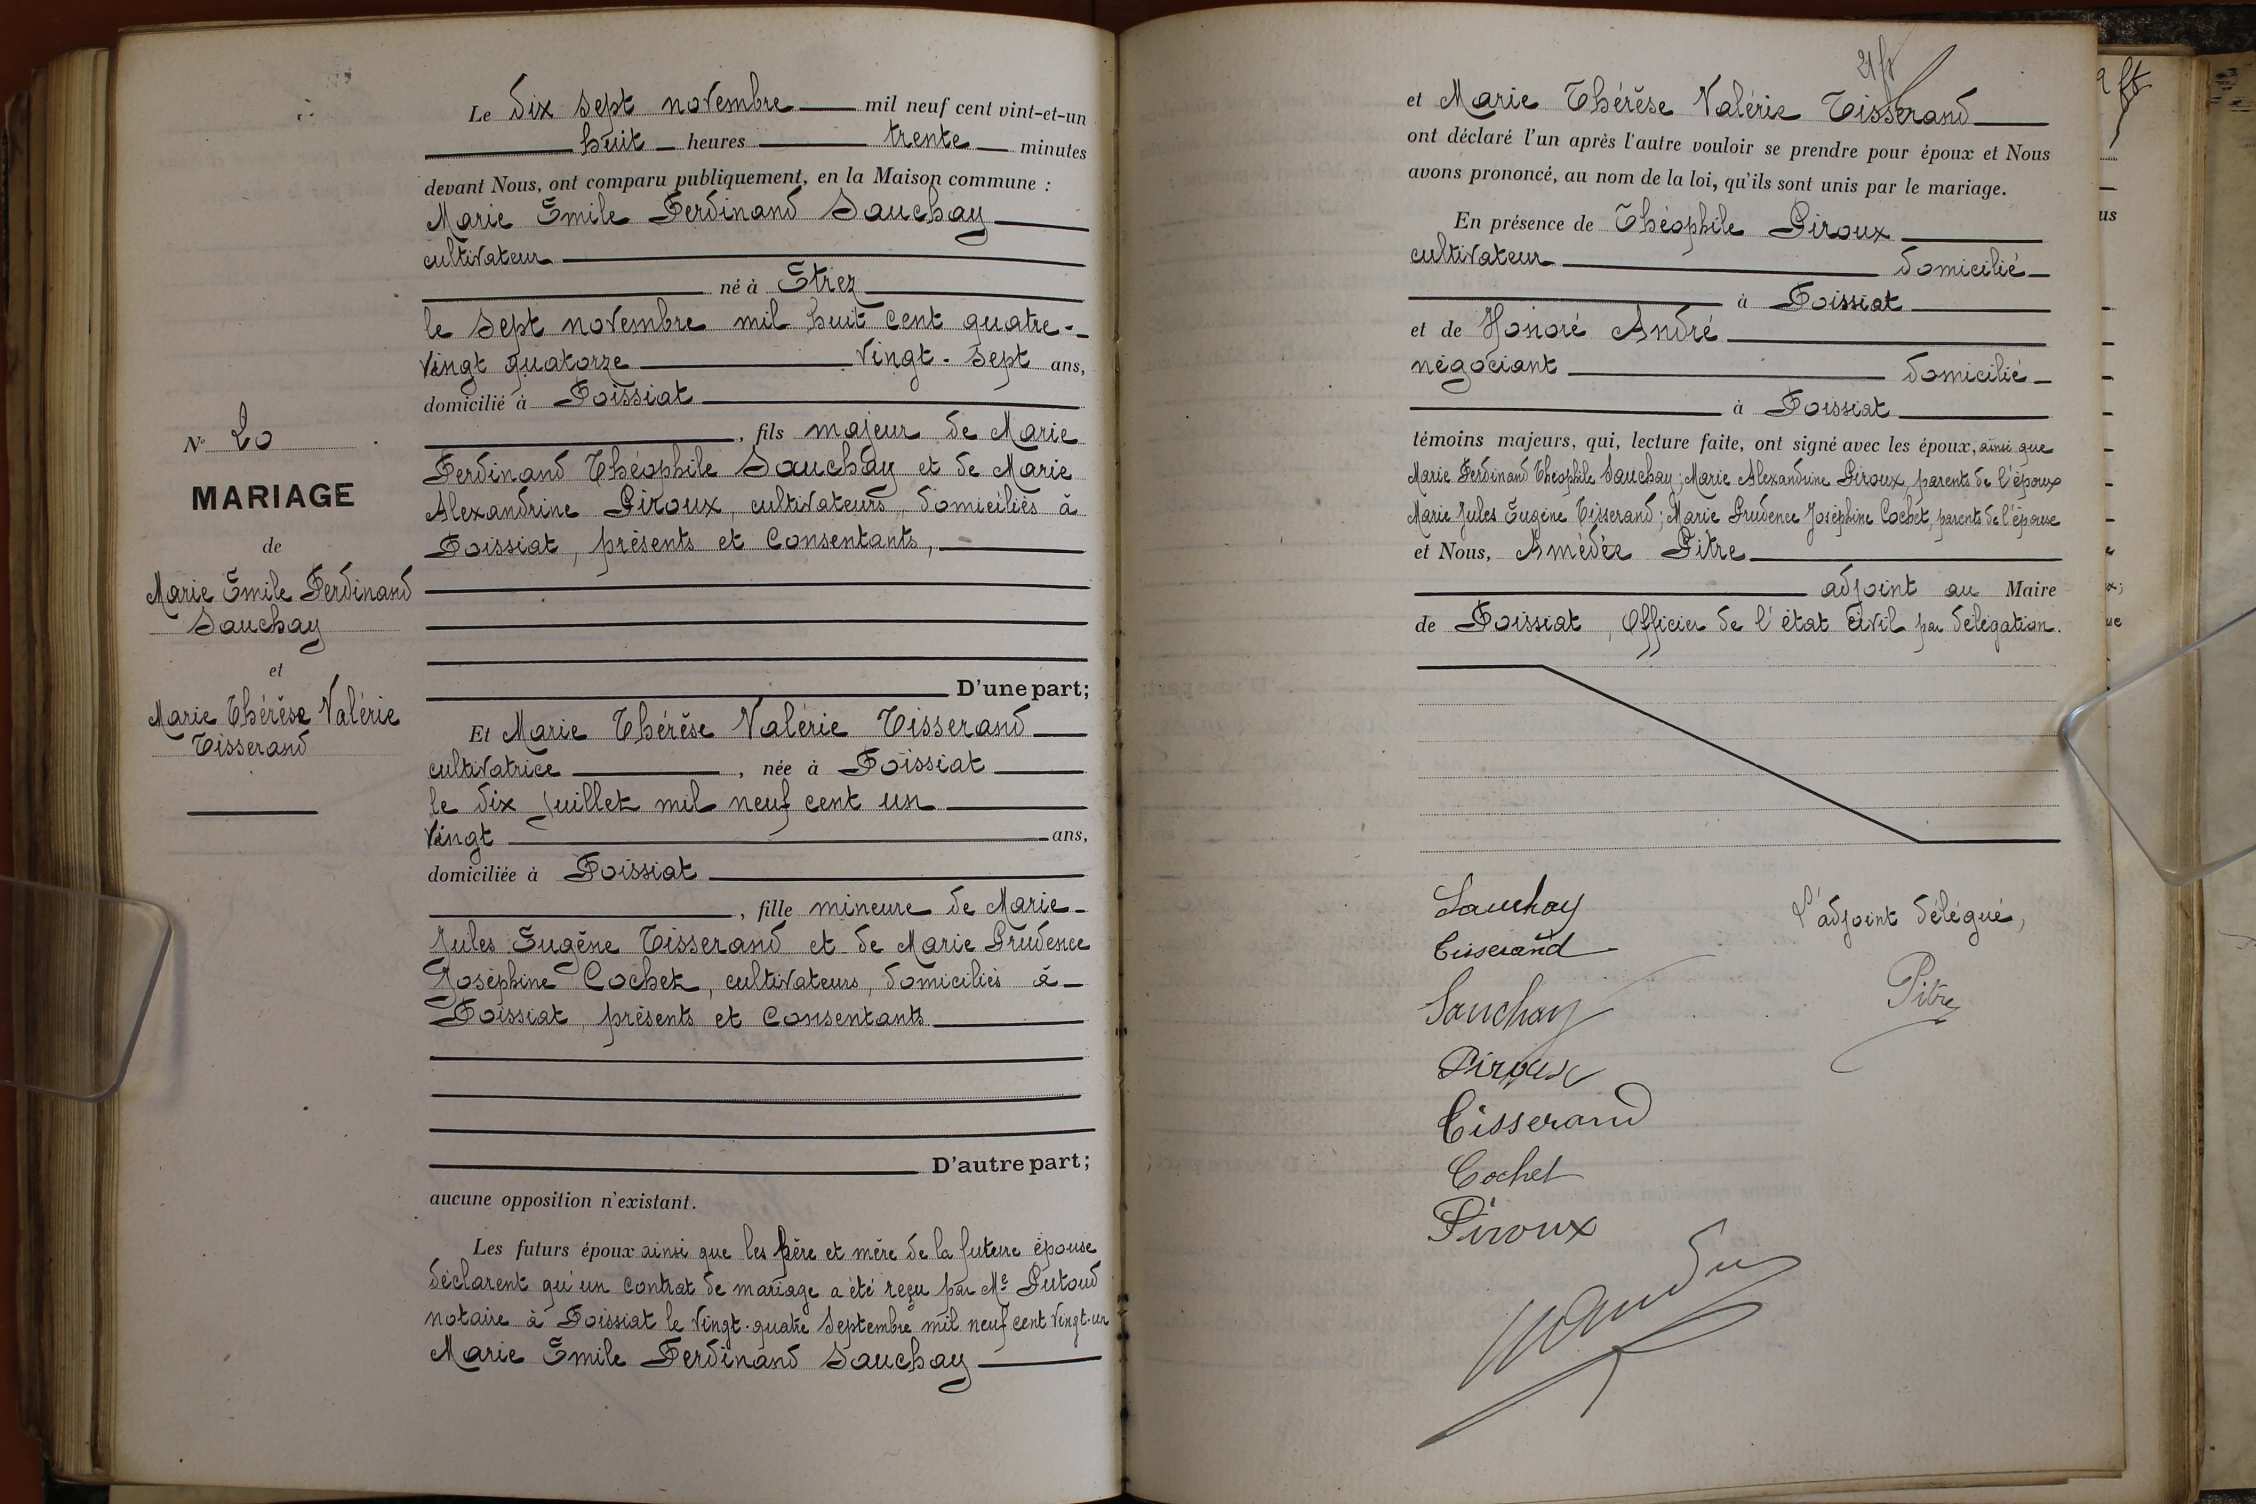 Le dix sept novembre mil neuf cent vint-et-un
huit heures trente minutes
devant Nous, ont comparu publiquement, en la Maison commune :
Marie Emile Ferdinand Sauchay
cultivateur
né à Etrez
le sept novembre mil huit cent quatre-
vingt quatorze vingt-sept ans,
domicilié à Foissiat
, fils majeur de Marie
Ferdinand Théophile Sauchay et de Marie
Alexandrine Piroux, cultivateurs, domiciliés à
Foissiat, présents et consentants,
D'une part;
Et Marie Thérèse Valérie Tisserand
cultivatrice , née à Foissiat
le dix juillet mil neuf cent un
vingt ans,
domiciliée à Foissiat
, fille mineure de Marie-
Jules Eugène Tisserand et de Marie Prudence
Joséphine Cochet, cultivateurs, domiciliés à
Foissiat, présents et consentants
D'autre part;
aucune opposition n'existant.
Les futurs époux ainsi que les père et mère de la future épouse
déclarent qu'un contrat de mariage a été reçu par Me Putoud
notaire à Foissiat le vingt-quatre septembre mil neuf cent vingt-un
Marie Emile Ferdinand Sauchay
No 20
MARIAGE
de
Marie Emile Ferdinand
Sauchay
et
Marie Thérèse Valérie
Tisserand
21 ft
et Marie Thérèse Valérie Tisserand
ont déclaré l'un après l'autre vouloir se prendre pour époux et Nous
avons prononcé, au nom de la loi, qu'ils sont unis par le mariage.
En présence de Théophile Piroux
cultivateur domicilié
à Foissiat
et de Honoré André
négociant domicilié
à Foissiat
témoins majeurs, qui, lecture faite, ont signé avec les époux, ainsi que
Marie Ferdinand Théophile Sauchay ; Marie Alexandrine Piroux, parents de l'époux
Marie Jules Eugène Tisserand ; Marie Prudence Joséphine Cochet, parents de l'épouse
et Nous, Amédée Pitre
adjoint au Maire
de Foissiat, Officier de l'état civil par délégation.
Sauchay
Tisserand
Sauchay
Piroux
Tisserand
Cochet
Piroux
L'adjoint délégué,
Pitre